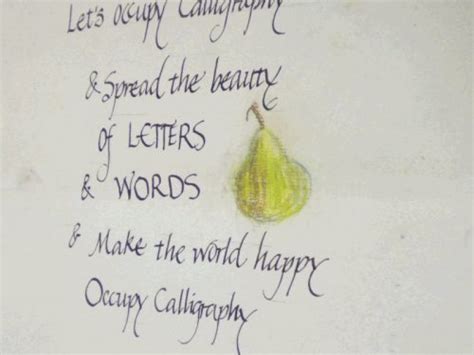 Let's Occupy Calligraphy
& Spread the beauty
of LETTERS
& WORDS
& Make the world happy
Occupy Calligraphy